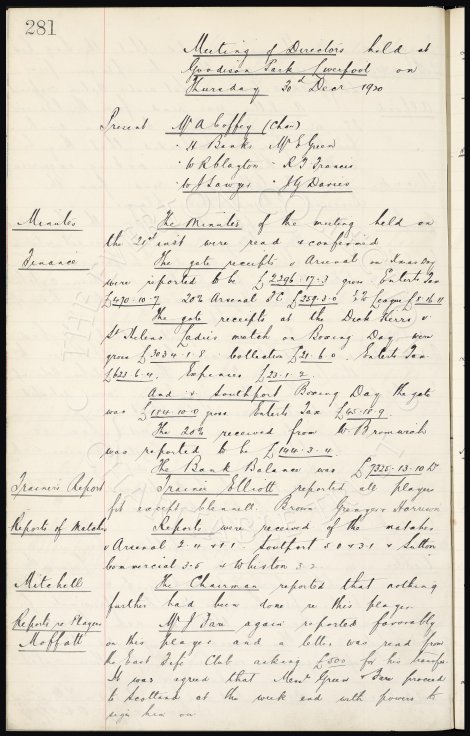 281
Meeting of Directors held at
Goodison Park Liverpool on
Thursday 30th Decr 1920
Present Mr A Coffey (Chair)
" H Banks Mr E Green
" W R Clayton " R T Francis
" W J Sawyer " J G Davies
Minutes The Minutes of the meeting held on
the 21st inst were read & confirmed
Finance The gate receipts v Arsenal on Xmas Day
were reported to be £2396-17-3 gross Enterts Tax
£470-10-7 20% Arsenal F.C £359-3-0 League £8-16-11
The gate receipts at the Dick Kerrs v
St Helens Ladies match on Boxing Day were
gross £3034-1-8 Collection £21-6-0 Enterts Tax
£623-6-4 Expenses £23-1-2
And v Southport Boxing Day the gate
was £184-10-0 gross Enterts Tax £45-18-9
The 20% received from W Bromwich
was reported to be £144-3-4
The Bank Balance was £7325-13-10 Dr
Trainers Report Trainer Elliott reported all players
fit except Clennell Brown Grenyer & Harrison
Reports of Matches Reports were received of the matches
v Arsenal 2-4 & 1-1 Southport 5-0 & 3-1 & Sutton
Commercial 3-6 & Whiston 3-2
Mitchell The Chairman reported that nothing
further had been done re this player
Reports re Players Mr J Fare again reported favorably
Moffatt on this player and a letter was read from
the East Fife Club asking £500 for his transfer
It was agreed that Messrs Green & Fare proceed
to Scotland at the week end with powers to
sign him on